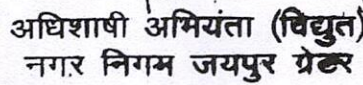 अधिशाषी अभियंता (विद्युत)
नगर निगम जयपुर ग्रेटर